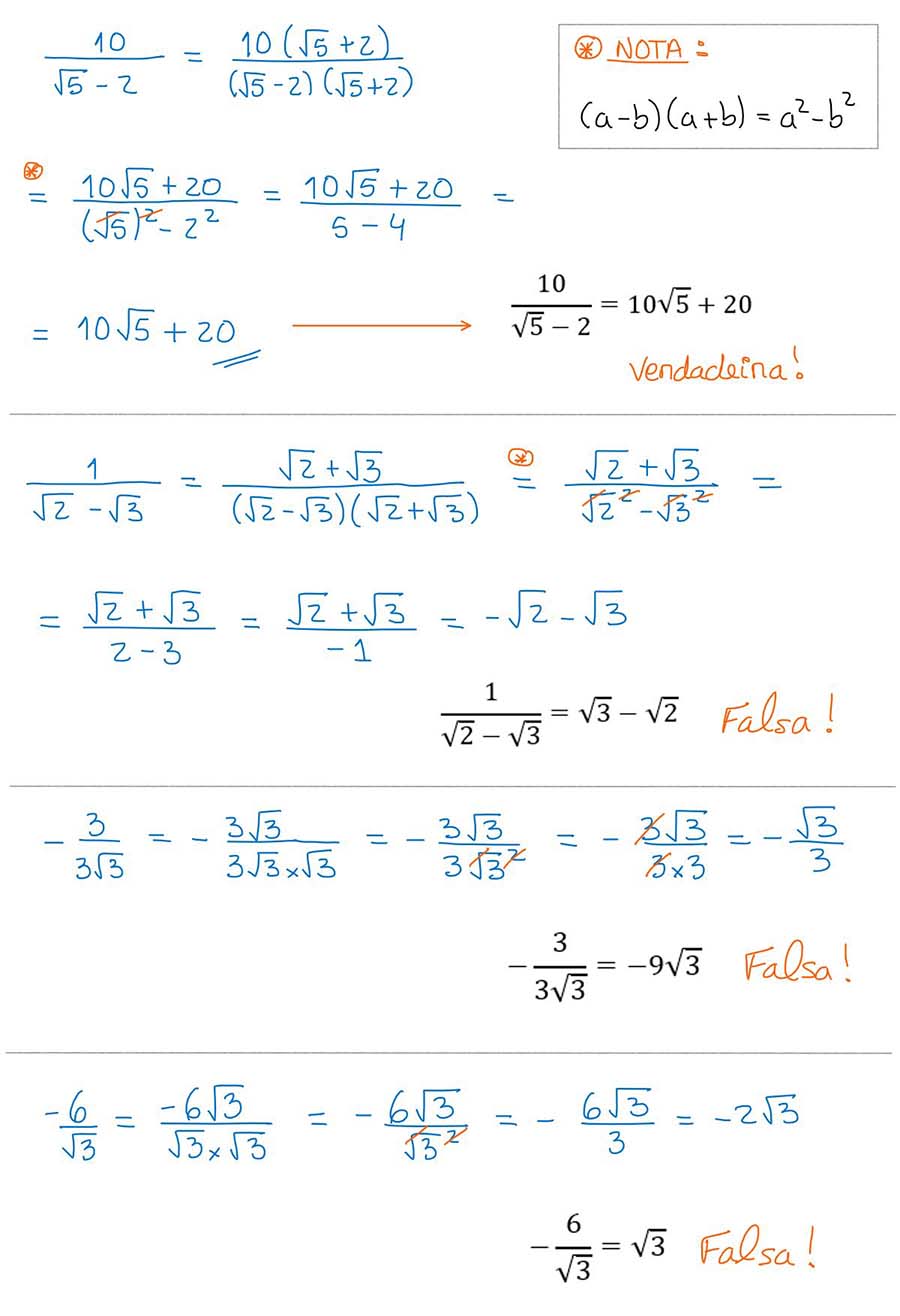 10/(√5 − 2) = 10(√5 + 2)/((√5 − 2)(√5 + 2))
⊛ NOTA:
(a − b)(a + b) = a² − b²
⊛ = (10√5 + 20)/((√5)² − 2²) = (10√5 + 20)/(5 − 4) =
= 10√5 + 20 → 10/(√5 − 2) = 10√5 + 20
Verdadeira!
1/(√2 − √3) = (√2 + √3)/((√2 − √3)(√2 + √3)) ⊛ = (√2 + √3)/(√2² − √3²) =
= (√2 + √3)/(2 − 3) = (√2 + √3)/(−1) = −√2 − √3
1/(√2 − √3) = √3 − √2 Falsa!
− 3/(3√3) = − 3√3/(3√3 × √3) = − 3√3/(3√3²) = − 3√3/(3 × 3) = − √3/3
− 3/(3√3) = −9√3 Falsa!
−6/√3 = −6√3/(√3 × √3) = − 6√3/√3² = − 6√3/3 = −2√3
− 6/√3 = √3 Falsa!